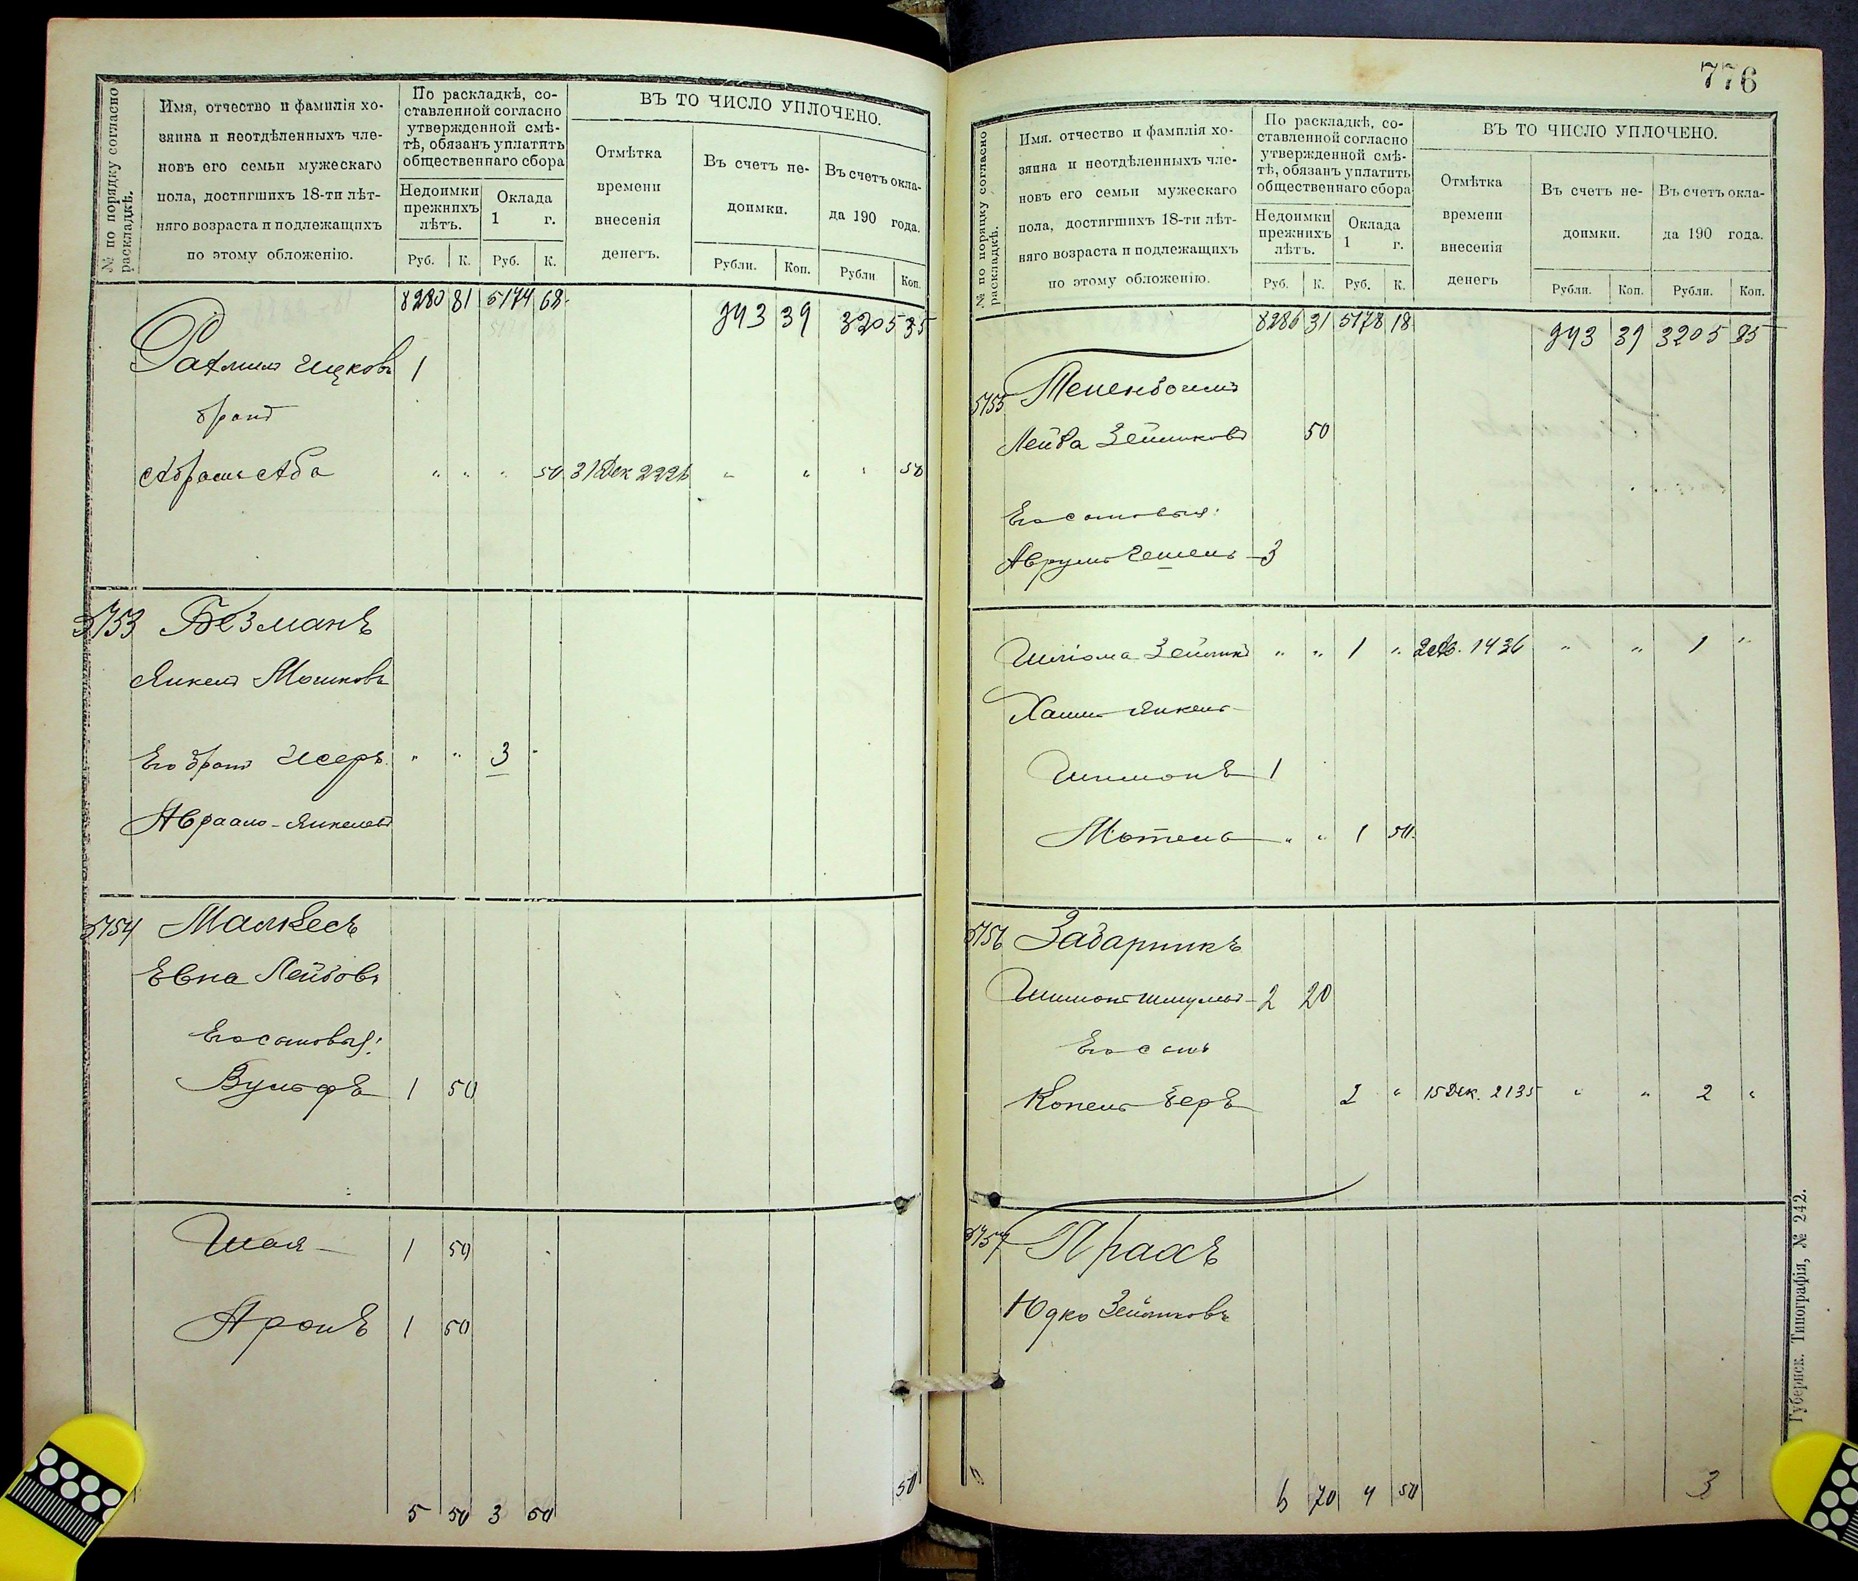 № по порядку согласно раскладкѣ.
Имя, отчество и фамилія хо-
зяина и неотдѣленныхъ чле-
новъ его семьи мужескаго
пола, достигшихъ 18-ти лѣт-
няго возраста и подлежащихъ
по этому обложенію.
По раскладкѣ, со-
ставленной согласно
утвержденной смѣ-
тѣ, обязанъ уплатить
общественнаго сбора
Недоимки прежнихъ лѣтъ.
Оклада 1 г.
Руб. К. Руб. К.
ВЪ ТО ЧИСЛО УПЛОЧЕНО.
Отмѣтка времени внесенія денегъ.
Въ счетъ не-
доимки.
Въ счетъ окла-
да 190 года.
Рубли. Коп. Рубли Коп.
8280 81 5174 68
943 39 3205 35
Ицковъ 1
братъ
Абрамъ Аба " " " 50 31 Дек 2221 " " " 50
5753 Безманъ
Янкель Мошковъ
Его братъ Исеръ " " 3 "
Авраамъ-Янкель
5754 Малкесъ
Евна Лейбовъ
Его сыновья:
Вульфъ 1 50
Шая 1 50
Аронъ 1 50
5 50 3 50
50
776
№ по порядку согласно раскладкѣ.
Имя, отчество и фамилія хо-
зяина и неотдѣленныхъ чле-
новъ его семьи мужескаго
пола, достигшихъ 18-ти лѣт-
няго возраста и подлежащихъ
по этому обложенію.
По раскладкѣ, со-
ставленной согласно
утвержденной смѣ-
тѣ, обязанъ уплатить
общественнаго сбора
Недоимки прежнихъ лѣтъ.
Оклада 1 г.
Руб. К. Руб. К.
ВЪ ТО ЧИСЛО УПЛОЧЕНО.
Отмѣтка времени внесенія денегъ
Въ счетъ не-
доимки.
Въ счетъ окла-
да 190 года.
Рубли. Коп. Рубли. Коп.
8286 31 5178 18
943 39 3205 85
5755 Тененбаумъ
Лейба Зейликовъ 50
Его сыновья:
Аврумъ Гешель 3
Шлiома Зейликъ " " 1 " 1436 " " 1 "
Хаимъ Янкель
Шимонъ 1
Мотель " " 1 50
5756 Забарникъ
Шимонъ Шмулев 2 20
Его сынъ
Копель Беръ 2 " 15 Дек. 2135 " " 2 "
5757 Прахъ
Юдко Зейликовъ
6 70 4 50
3
Губернск. Типографія, № 242.